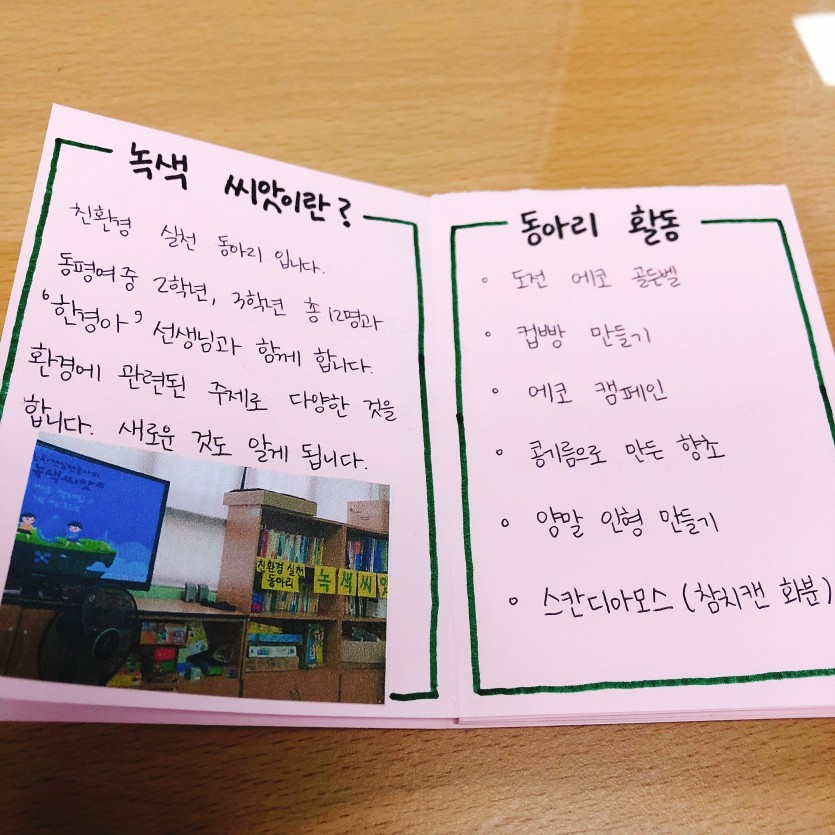 녹색 씨앗이란?
친환경 실천 동아리 입니다.
동평여중 2학년, 3학년 총 12명과
'한경아' 선생님과 함께 합니다.
환경에 관련된 주제로 다양한 것을
합니다. 새로운 것도 알게 됩니다.
녹색씨앗
친환경 실천
동아리
녹색씨앗
동아리 활동
• 도전 에코 골든벨
• 컵빵 만들기
• 에코 캠페인
• 콩기름으로 만든 향초
• 양말 인형 만들기
• 스칸디아모스 (참치캔 화분)